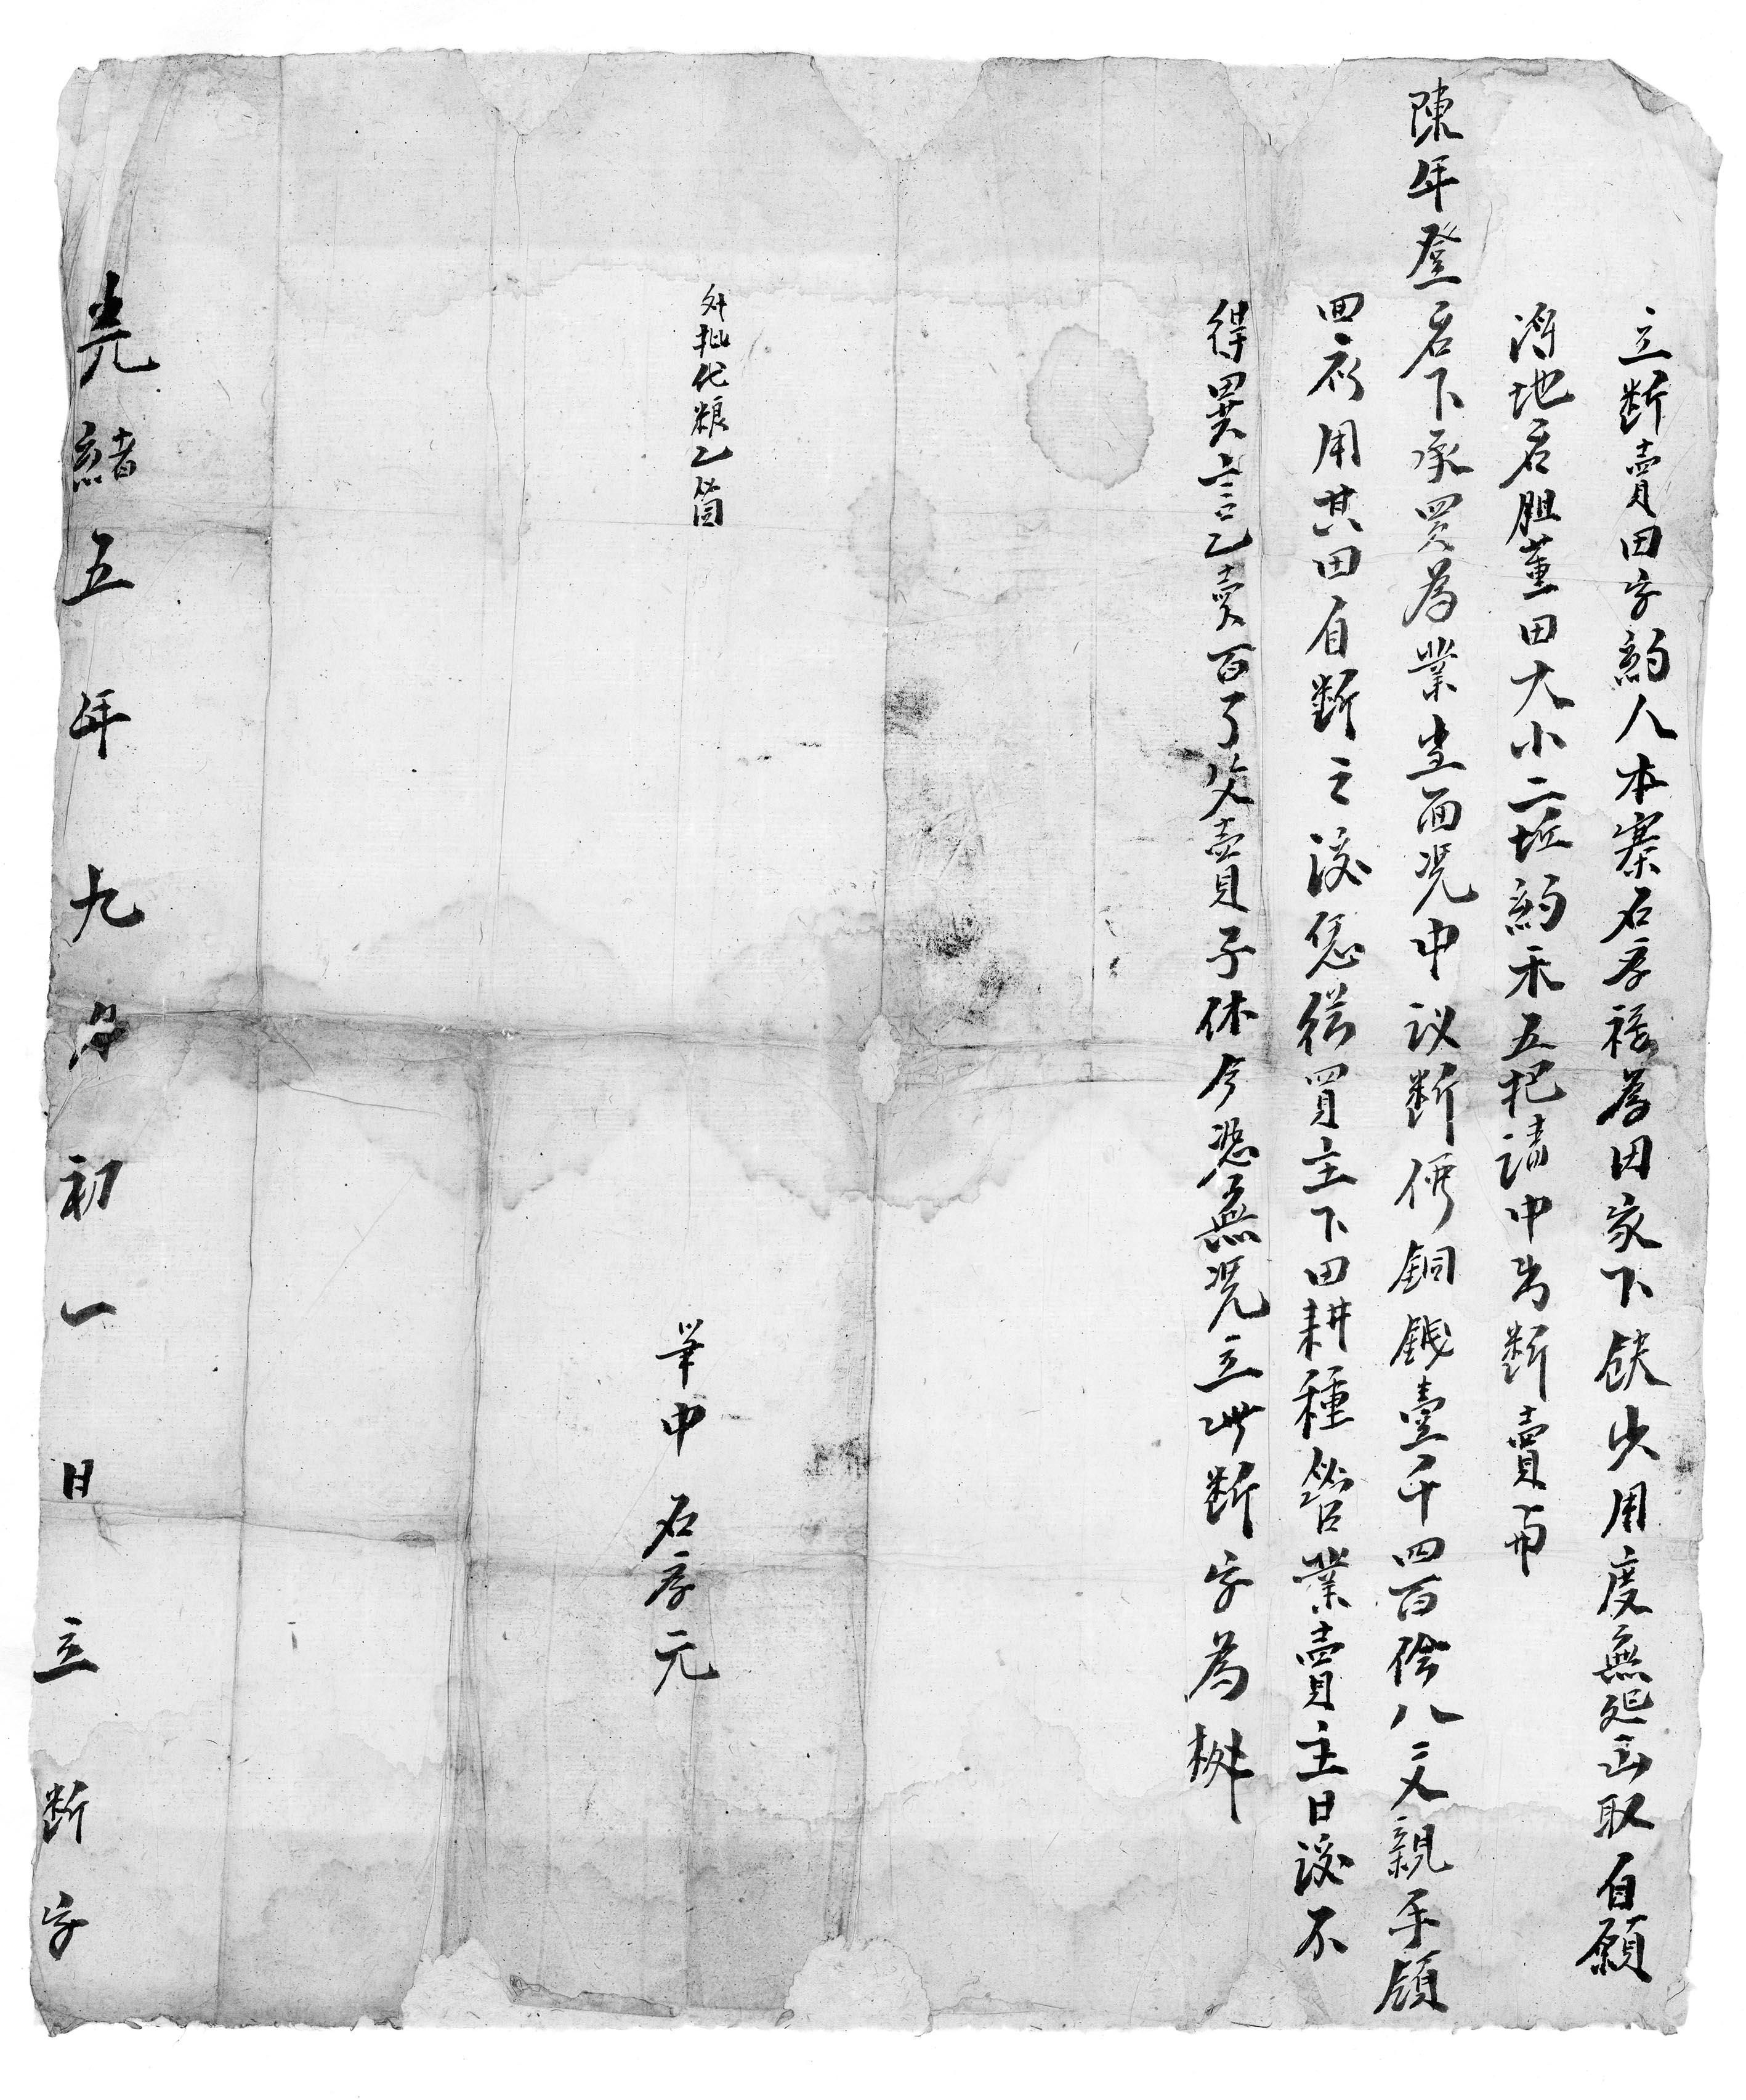 立断賣田字約人本寨石孝禄為因家下缺少用度無処出取自願
将地名胆董田大小二坵約禾五把請中出断賣与
陳年登名下承買為業当面凭中议断價銅錢壹千四百俢八文親手領
回应用其田自断之後恁從買主下田耕種管業賣主日後不
得異言乙賣百了父賣子休今恐無凭立此断字為㭽
外批代粮乙箇
筆中 石孝元
光緒五年九月初一日立断字